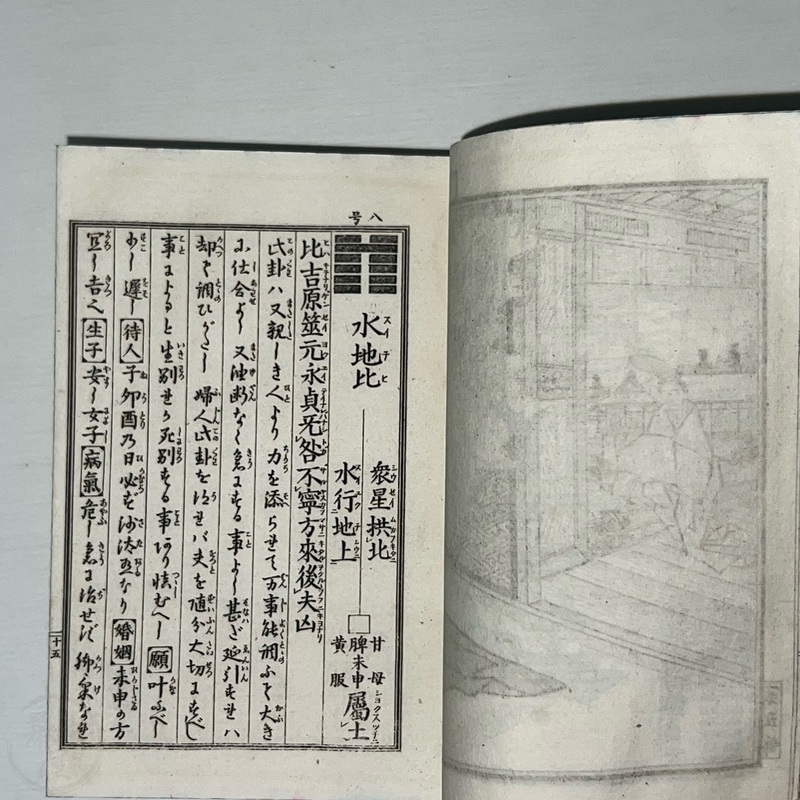 八号
水地比
衆星拱北
水行地上
甘 脾 黄
母 未申 服
屬土
比吉原筮元永貞无咎不寧方來後夫凶
此卦ハ又親しき人より力を添らせて万事能調ふて大き
に仕合よし又油断なく急にする事よし甚だ延引すれハ
却て調ひがたし婦人此卦を得れバ夫を随分大切にすべし
事によると生別せるか死別する事あり慎むべし願叶ふべし
少し遅し待人子卯酉乃日必ず沙汰至なり婚姻未申の方
宜し吉し生子安し女子病氣危し急に治せず
十五